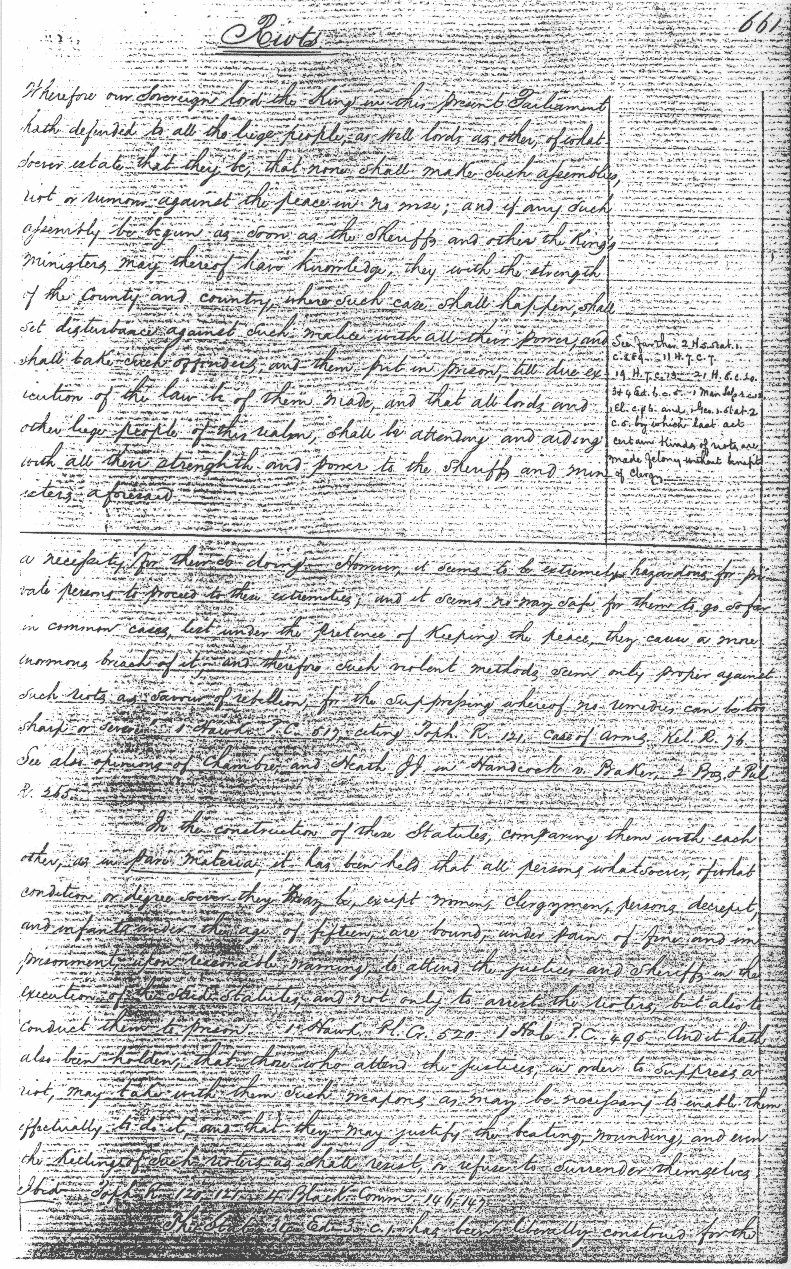 Riots
661
Wherefore our Sovereign lord the King in this present Parliament
hath defended to all the liege people, as well lords as other, of what
soever estate that they be, that none shall make such assemblies,
riot or rumour against the peace in no wise; and if any such
assembly be begun as soon as the Sheriffs and other the Kings
Ministers may thereof have knowledge, they with the strength
of the County and country, where such case shall happen, shall
set disturbance against such malice with all their power, and
shall take such offenders, and them put in prison, till due ex
ecution of the law be of them made, and that all lords and
other liege people of this realm, shall be attending and aiding
with all their strenghth and power to the Sheriffs and min
isters aforesaid
See further 2 H.5. Stat. 1.
c. 8 & 9 — 11 H. 7. c. 7.
19 H. 7. c. 13 — 21 H. 8. c. 20.
3 & 4 Ed. 6. c. 5. 1 Mar.
1 Geo. 1. Stat. 2
c. 5. by which last act
certain kinds of riots are
made felony without benefit
of Clergy
a necessity for their so doing. However, it seems to be extremely hazardous for pri
vate persons to proceed to these extremities; and it seems no way safe for them to go so far
in common cases, lest under the pretence of keeping the peace, they cause a more
enormous breach of it; and therefore such violent methods seem only proper against
such riots as savour of rebellion, for the suppressing whereof no remedies can be too
sharp or severe. 1 Hawk. P.C. 517, citing Poph. R. 121, Case of Arms, Kel. R. 76.
See also opinions of Chambre, and Heath JJ in Handcock v. Baker, 2 Bos. & Pul
R. 265.
In the construction of these Statutes, comparing them with each
other, as in pari materia, it has been held that all persons whatsoever, of what
condition or degree soever they may be, except women, Clergymen, persons decrepit,
and infants under the age of fifteen, are bound, under pain of fine and im
prisonment, upon reasonable warning, to attend the justices and Sheriff in the
execution of the said Statutes, and not only to arrest the rioters, but also to
conduct them to prison. 1 Hawk. Pl. Cr. 520. 1 Hale P.C. 495. And it hath
also been holden, that those who attend the justices, in order to suppress a
riot, may take with them such weapons as may be necessary to enable them
effectually to do it, and that they may justify the beating, wounding, and even
the killing of such rioters as shall resist, or refuse to surrender themselves
Ibid. Poph. R. 120, 121. 4 Black. Comm. 146, 147
The Stat. 34 Ed. 3. c. 1. has been liberally construed for the